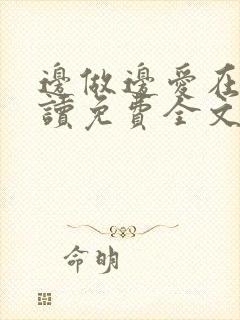 邊做邊愛在
讀免費全文
命明